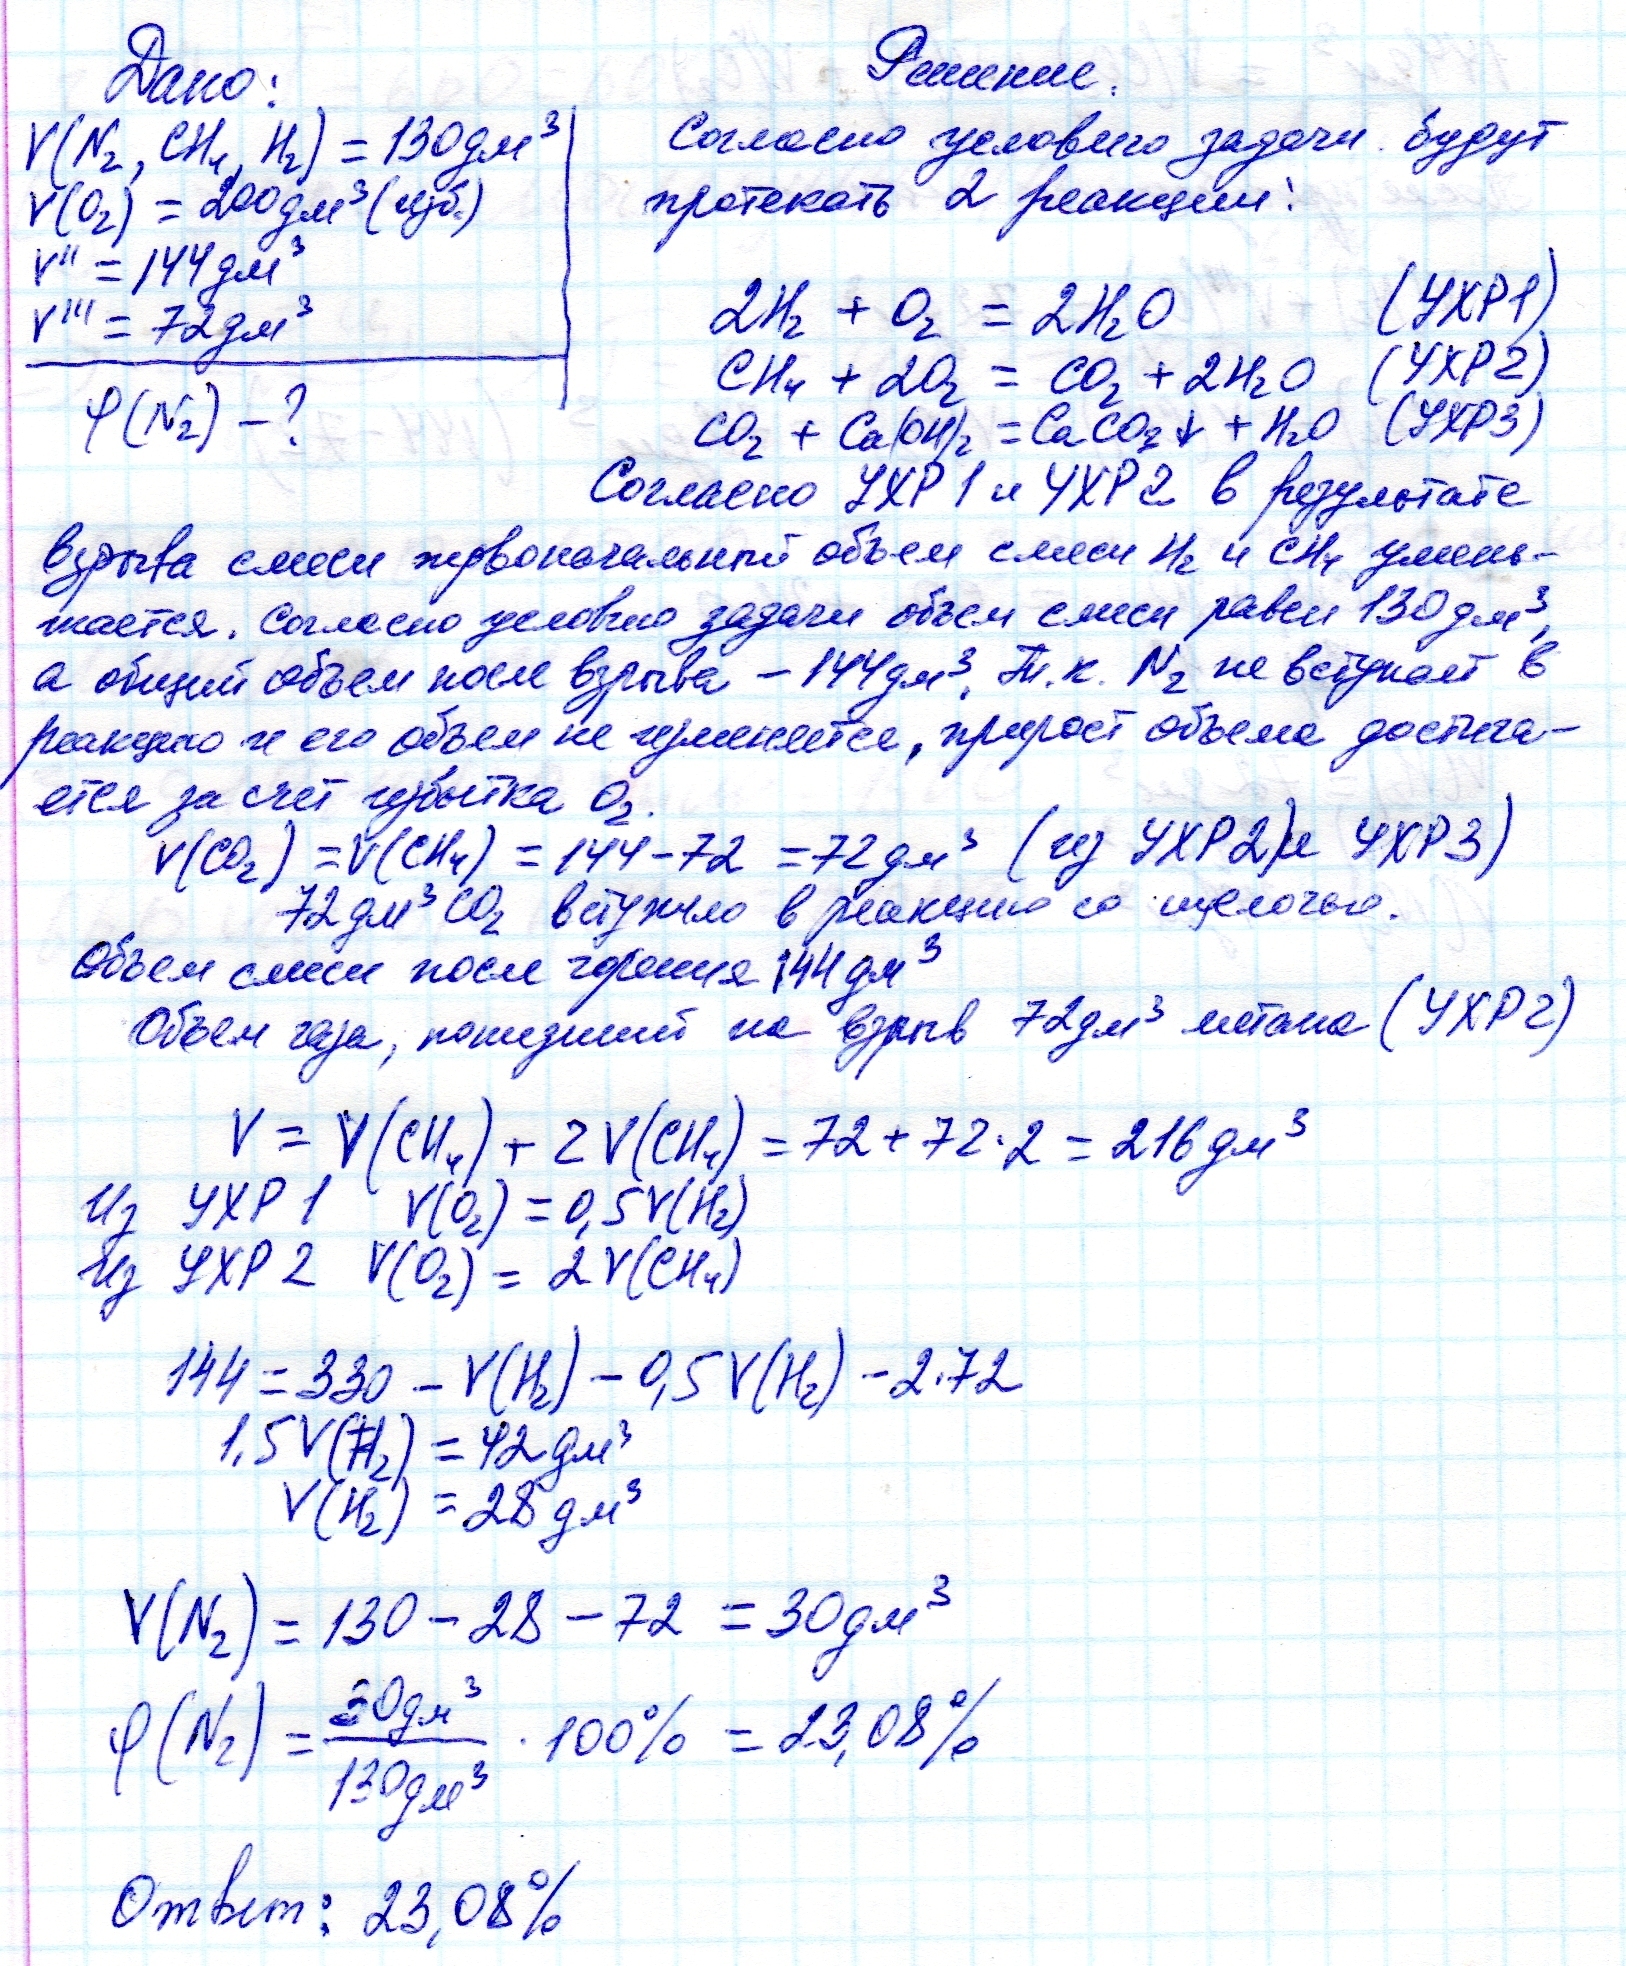 Дано:
Решение.
V(N₂, CH₄, H₂) = 130 дм³
V(O₂) = 200 дм³ (изб.)
V'' = 144 дм³
V''' = 72 дм³
φ(N₂) – ?
Согласно условию задачи будут
протекать 2 реакции:
2H₂ + O₂ = 2H₂O (УХР1)
CH₄ + 2O₂ = CO₂ + 2H₂O (УХР2)
CO₂ + Ca(OH)₂ = CaCO₃↓ + H₂O (УХР3)
Согласно УХР1 и УХР2 в результате
взрыва смеси первоначальный объем смеси H₂ и CH₄ умень-
шается. Согласно условию задачи объем смеси равен 130 дм³,
а общий объем после взрыва – 144 дм³. Т.к. N₂ не вступает в
реакцию и его объем не изменяется, прирост объема достига-
ется за счет избытка O₂.
V(CO₂) = V(CH₄) = 144 – 72 = 72 дм³ (из УХР2) и УХР3)
72 дм³ CO₂ вступило в реакцию со щелочью.
Объем смеси после горения 144 дм³
Объем газа, пошедший на взрыв 72 дм³ метана (УХР2)
V = V(CH₄) + 2V(CH₄) = 72 + 72·2 = 216 дм³
Из УХР1 V(O₂) = 0,5V(H₂)
Из УХР2 V(O₂) = 2V(CH₄)
144 = 330 – V(H₂) – 0,5V(H₂) – 2·72
1,5V(H₂) = 42 дм³
V(H₂) = 28 дм³
V(N₂) = 130 – 28 – 72 = 30 дм³
φ(N₂) = 30дм³/130дм³ · 100% = 23,08%
Ответ: 23,08%